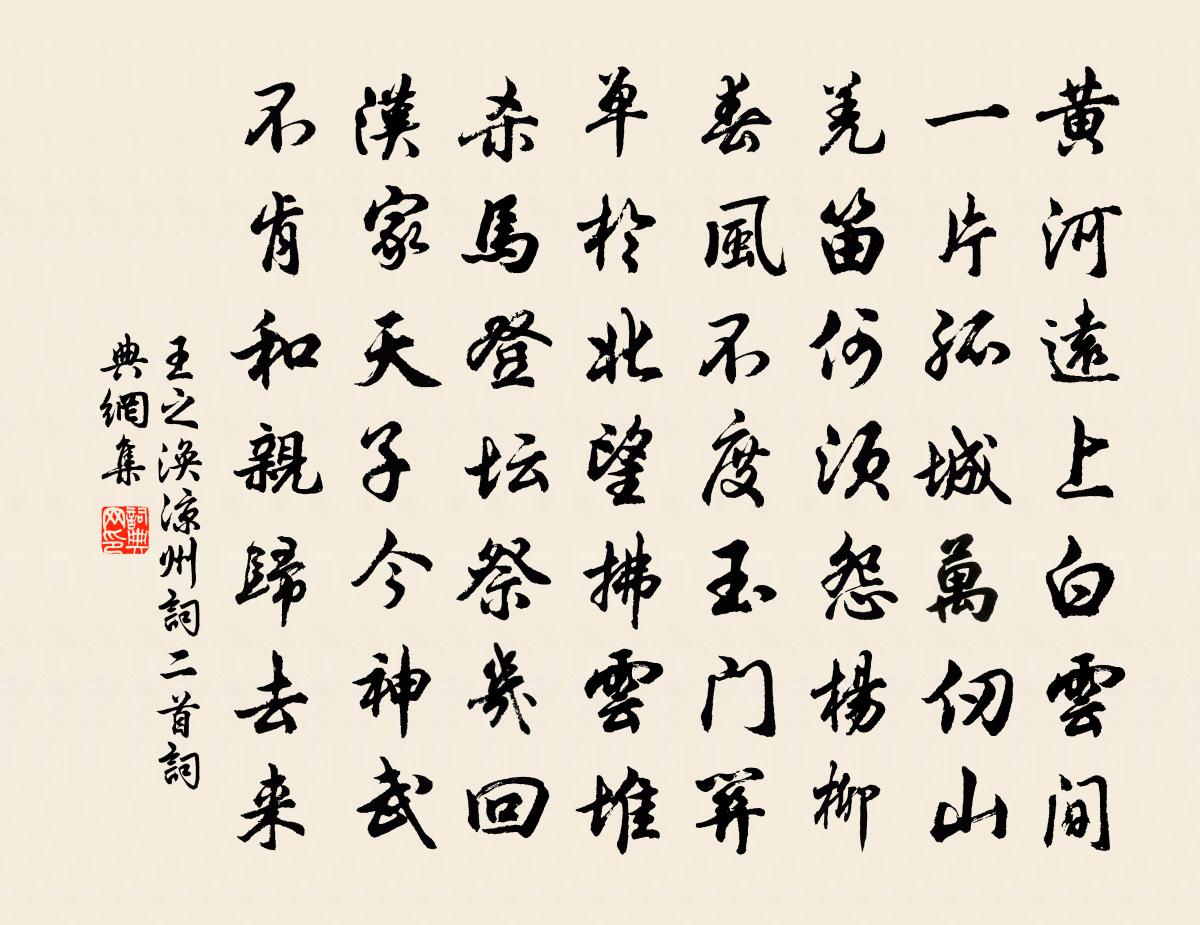 黄河遠上白雲間
一片孤城萬仞山
羌笛何須怨楊柳
春風不度玉门関
单於北望拂雲堆
杀馬登坛祭幾回
漢家天子今神武
不肯和親歸去来
王之渙涼州詞二首詞
典網集
詞典
网印